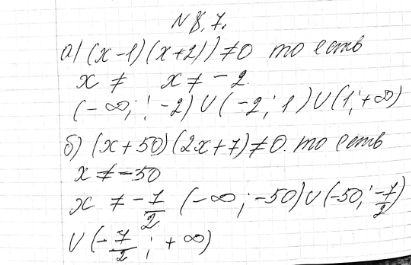 N 8,7.
а) (x-1)(x+2)) ≠ 0 то есть
x ≠    x ≠ -2
(-∞; -2) U (-2; 1) U (1; +∞)
б) (x+50)(2x+7) ≠ 0. то есть
x ≠ -50
x ≠ -7/2 (-∞; -50) U (-50; -7/2)
U (-7/2; +∞)